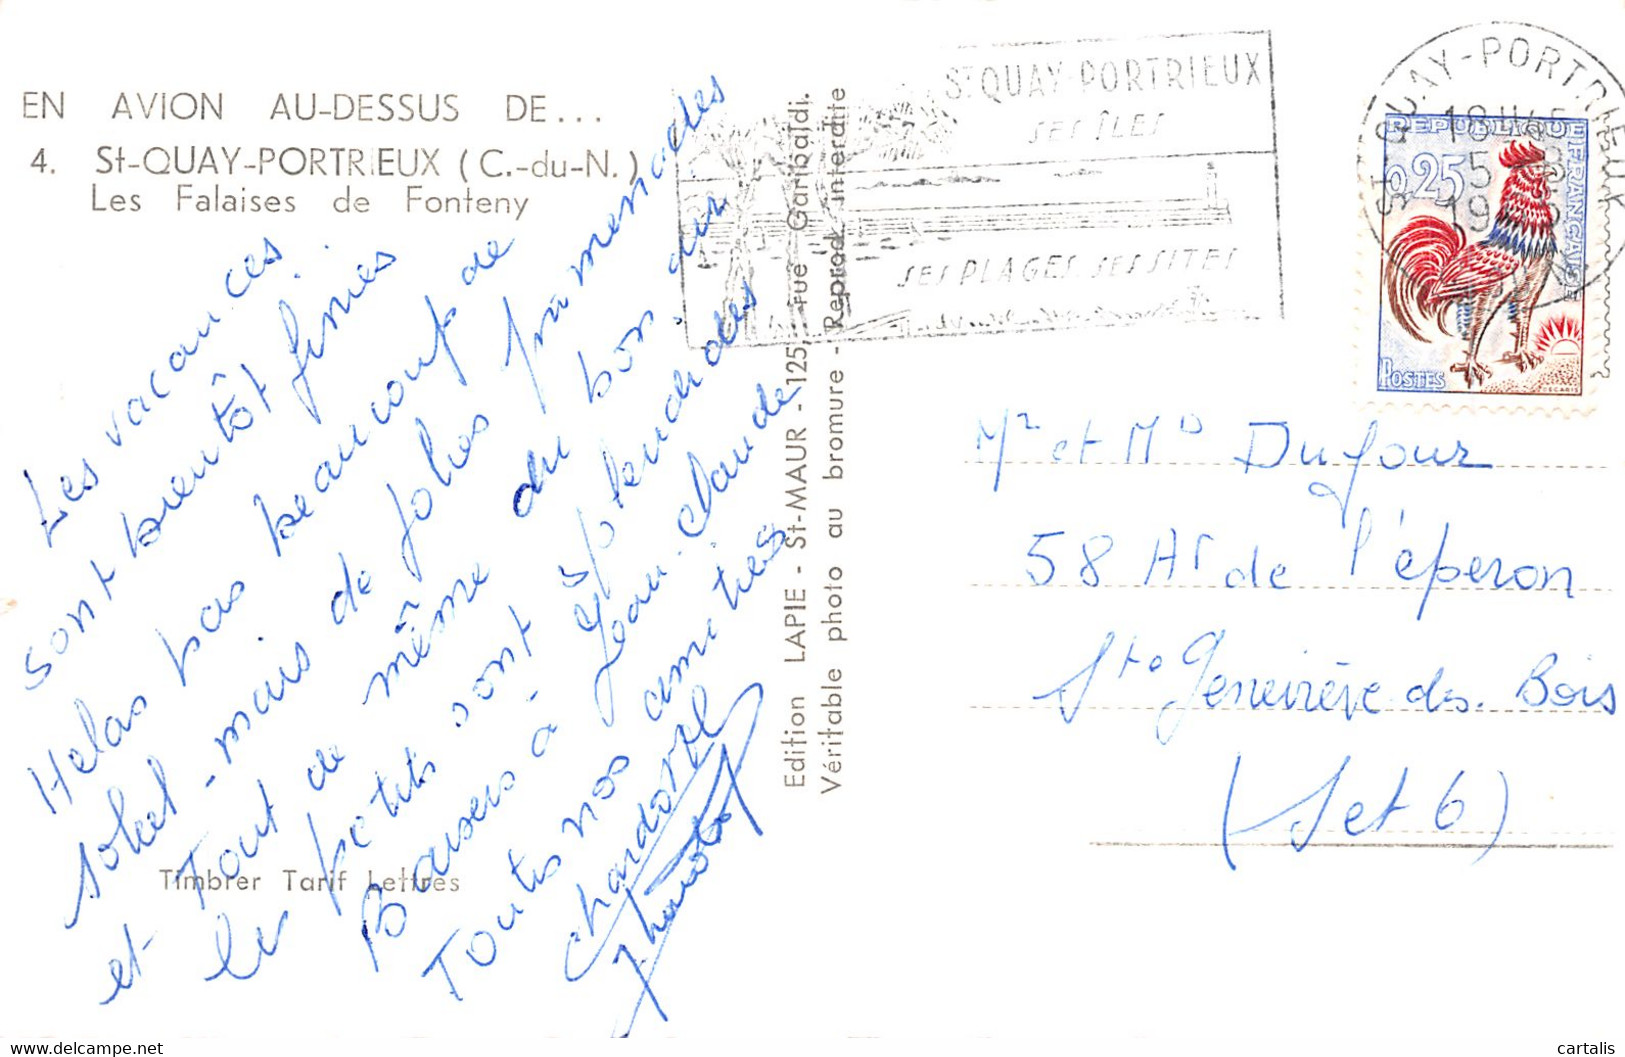 EN AVION AU-DESSUS DE...
4. St-QUAY-PORTRIEUX (C.-du-N.)
Les Falaises de Fonteny
Les vacances
sont bientôt finies
Helas pas beaucoup de
soleil - mais de jolies promenades
et Tout de même du bon air
les petits sont splendides
Baisers à Jean-claude
Toutes nos amitiés
Timbrer Tarif Lettres
Edition LAPIE - St-MAUR - 125, rue Garibaldi.
Véritable photo au bromure - Reprod. interdite
St QUAY-PORTRIEUX
SES ÎLES
SES PLAGES SES SITES
St QUAY-PORTRIEUX
18 H
REPUBLIQUE FRANÇAISE
0,25
POSTES
DECARIS
Mr et MD Dufour
58 Ar de l'éperon
Ste Geneviève des. Bois
(Set 6)
cartalis